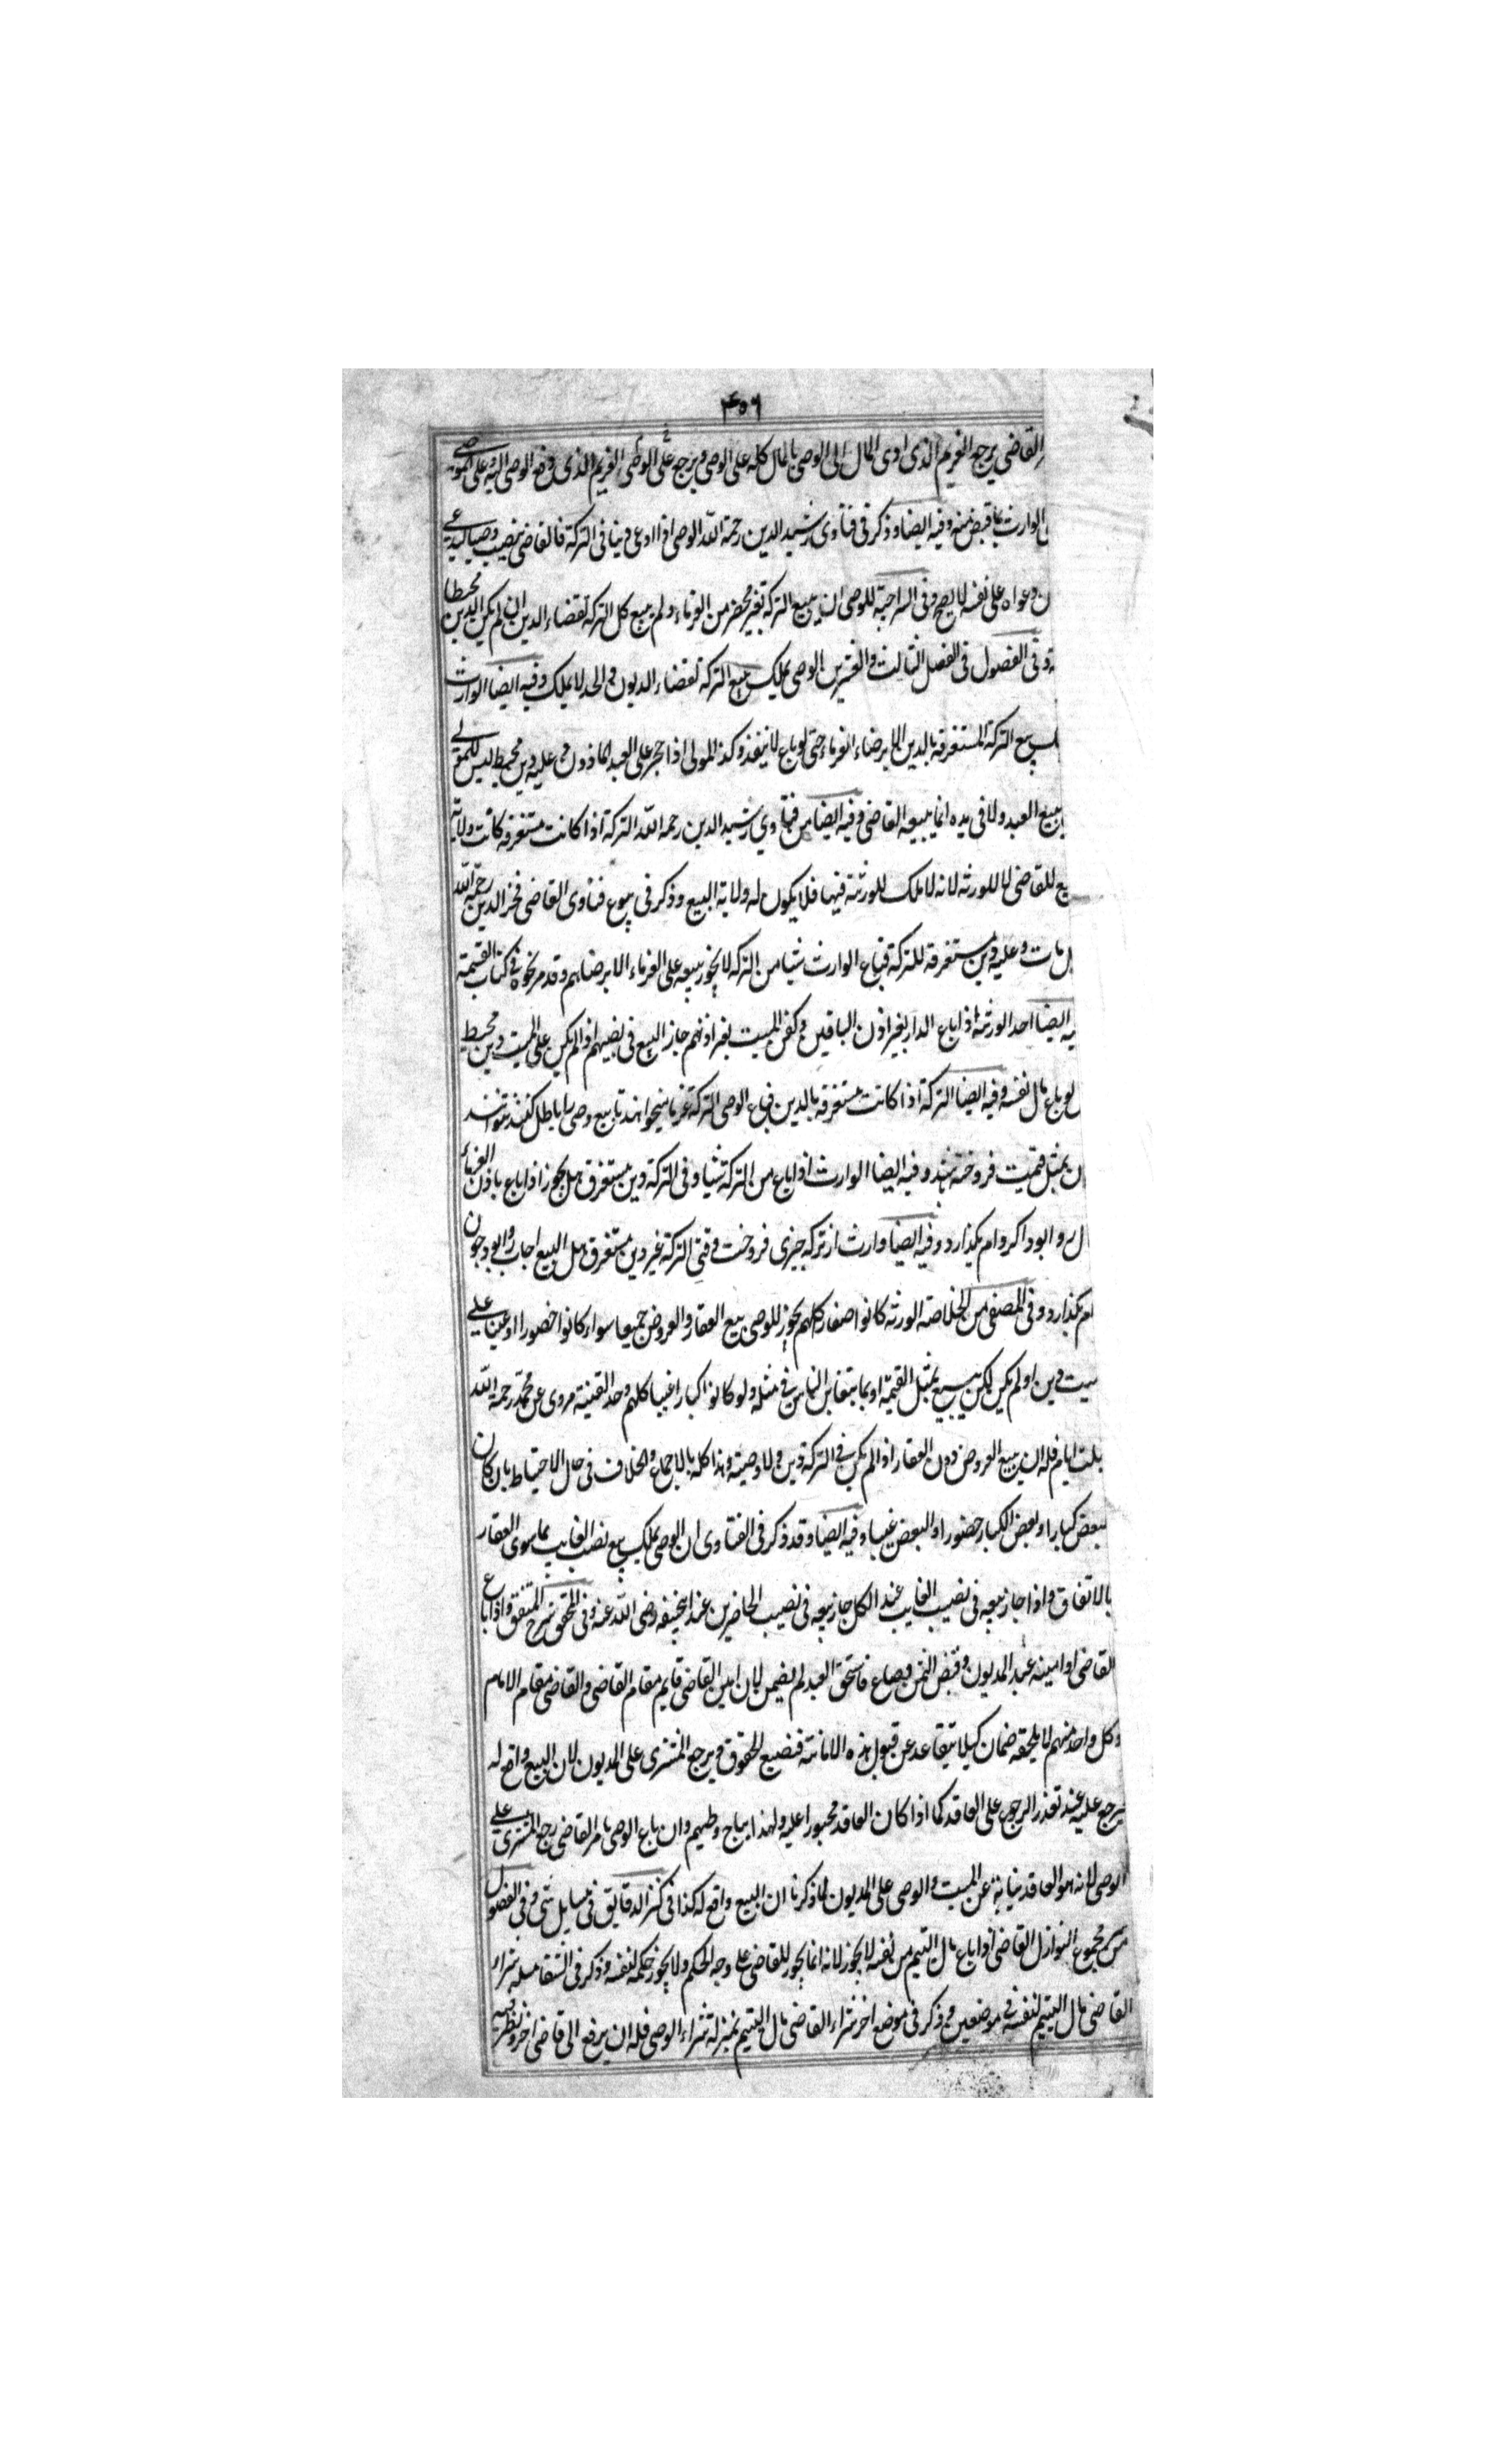 ٤٥٦
القاضي يرجع الغريم الذي ادى المال الى الوصي بالمال كله على الوصي ويرجع على الوصي الغريم الذي دفع الوصي اليه على
الوارث بما قبض منه وفيه ايضا وذكر في فتاوى رشيد الدين رحمة الله الوصي اذا ادعى دينا في التركة فالقاضي ينصب وصيا ليدعي
ن دعواه على نفسه لا يصح وفي السراجية للوصي ان يبيع التركة بغير محضر من الغرماء ولم يبيع كل التركة لقضاء الدين ان لم يكن الدين محيطا
وفي الفصول في الفصل الثالث والعشرين الوصي يملك بيع التركة لقضاء الديون لا يملك وفيه ايضا الوارث
بيع التركة المستغرقة بالدين الا برضاء الغرماء حتى لو باع لا ينفذ وكذا المولى اذا حجر على العبد الماذون وعليه دين محيط ليس للمولى
بيع العبد ولا في يده انما يبيعه القاضي وفيه ايضا من فتاوي رشيد الدين رحمه الله التركة اذا كانت مستغرقه كانت ولاية
بيع للقاضي لا للورثه لانه لا ملك للورثة فيها فلا يكون له ولاية البيع وذكر في بيوع فتاوى القاضي فخر الدين رحمه الله
ل مات وعليه دين مستغرقه للتركة فباع الوارث شيا من التركه لا يجوز بيعه على الغرماء الا برضاهم وقد مر نحوه في كتاب القسمة
يه ايضا احد الورثة اذا باع الدار بغير اذن الباقين وكفن الميت بغير اذنهم جاز البيع في نصيبهم اذا لم يكن على الميت دين محيط
لو باع مال نفسه وفيه ايضا التركة اذا كانت مستغرقه بالدين فباع الوصي التركة غرما ميخواهند تا بيع وصي را باطل كنند نتوانند
ن بمثل قيمت فروخته شد وفيه ايضا الوارث اذا باع من التركة شيا وفي التركة دين مستغرق هل يجوز اذا باع باذن الغرماء
ل روا بود اكر وام بگذارد وفيه ايضا وارث از تركه چيزى فروخت وفي التركة غير دين مستغرق هل البيع اجاب روا بود چون
ام بگذارد وفي المصفى من الخلاصة الورثه كانوا صغارا كلهم يجوز للوصي بيع العقار والعروض جميعا سواء كانوا حضورا او غيبا على
ميت دين او لم يكن لكن يبيع بمثل القيمة او بما يتغابن الناس في مثله ولو كانوا كبارا غيبا كلهم وحد الغيبة مروى عن محمد رحمه الله
ثلث ايام فله ان يبيع العروض دون العقار اذا لم يكن في التركة دين ولا وصية وهذا كله بالاجماع والخلاف في حال الاختلاط بان كان
لبعض كبارا وبعض الكبار حضورا والبعض غيبا وفيه ايضا وقد ذكر في الفتاوى ان الوصي يملك بيع نصيب الغايب بما سوى العقار
بالاتفاق واذا جاز بيعه في نصيب الغايب عند الكل جاز بيعه في نصيب الحاضرين عند ابي حنيفه رضى الله عنه وفي المحقق شرح المتفق واذا باع
القاضى او امينه عبد المديون وقبض الثمن وضاع فاستحق العبد لم يضمن لان امين القاضى قايم مقام القاضى والقاضى مقام الامام
وكل واحد منهم لا يلحقه ضمان كيلا يتقاعد عن قبول هذه الامانة فتضيع الحقوق ويرجع المشترى على المديون لان البيع واقع له
يرجع عليه عند تعذر الرجوع على العاقد كما اذا كان العاقد محجورا عليه ولهذا يباح وان باع الوصي بامر القاضى رجع المشترى على
الوصي لانه هو العاقد نيابة عن الميت والوصي على المديون لما ذكرنا ان البيع واقع له كذا في كنز الدقايق في مسايل شتى وفي الفصول
من مجموع النوازل القاضي اذا باع مال اليتيم من نفسه لا يجوز لانه انما يجوز للقاضى على وجه الحكم ولا يجوز حكمه لنفسه وذكر في الملتقط مسله شراء
القاضى مال اليتيم لنفسه في موضعين وذكر في موضع اخر شراء القاضى مال اليتيم بمنزلة شراء الوصي فله ان يرفع الى قاضى اخر وينظر فيه